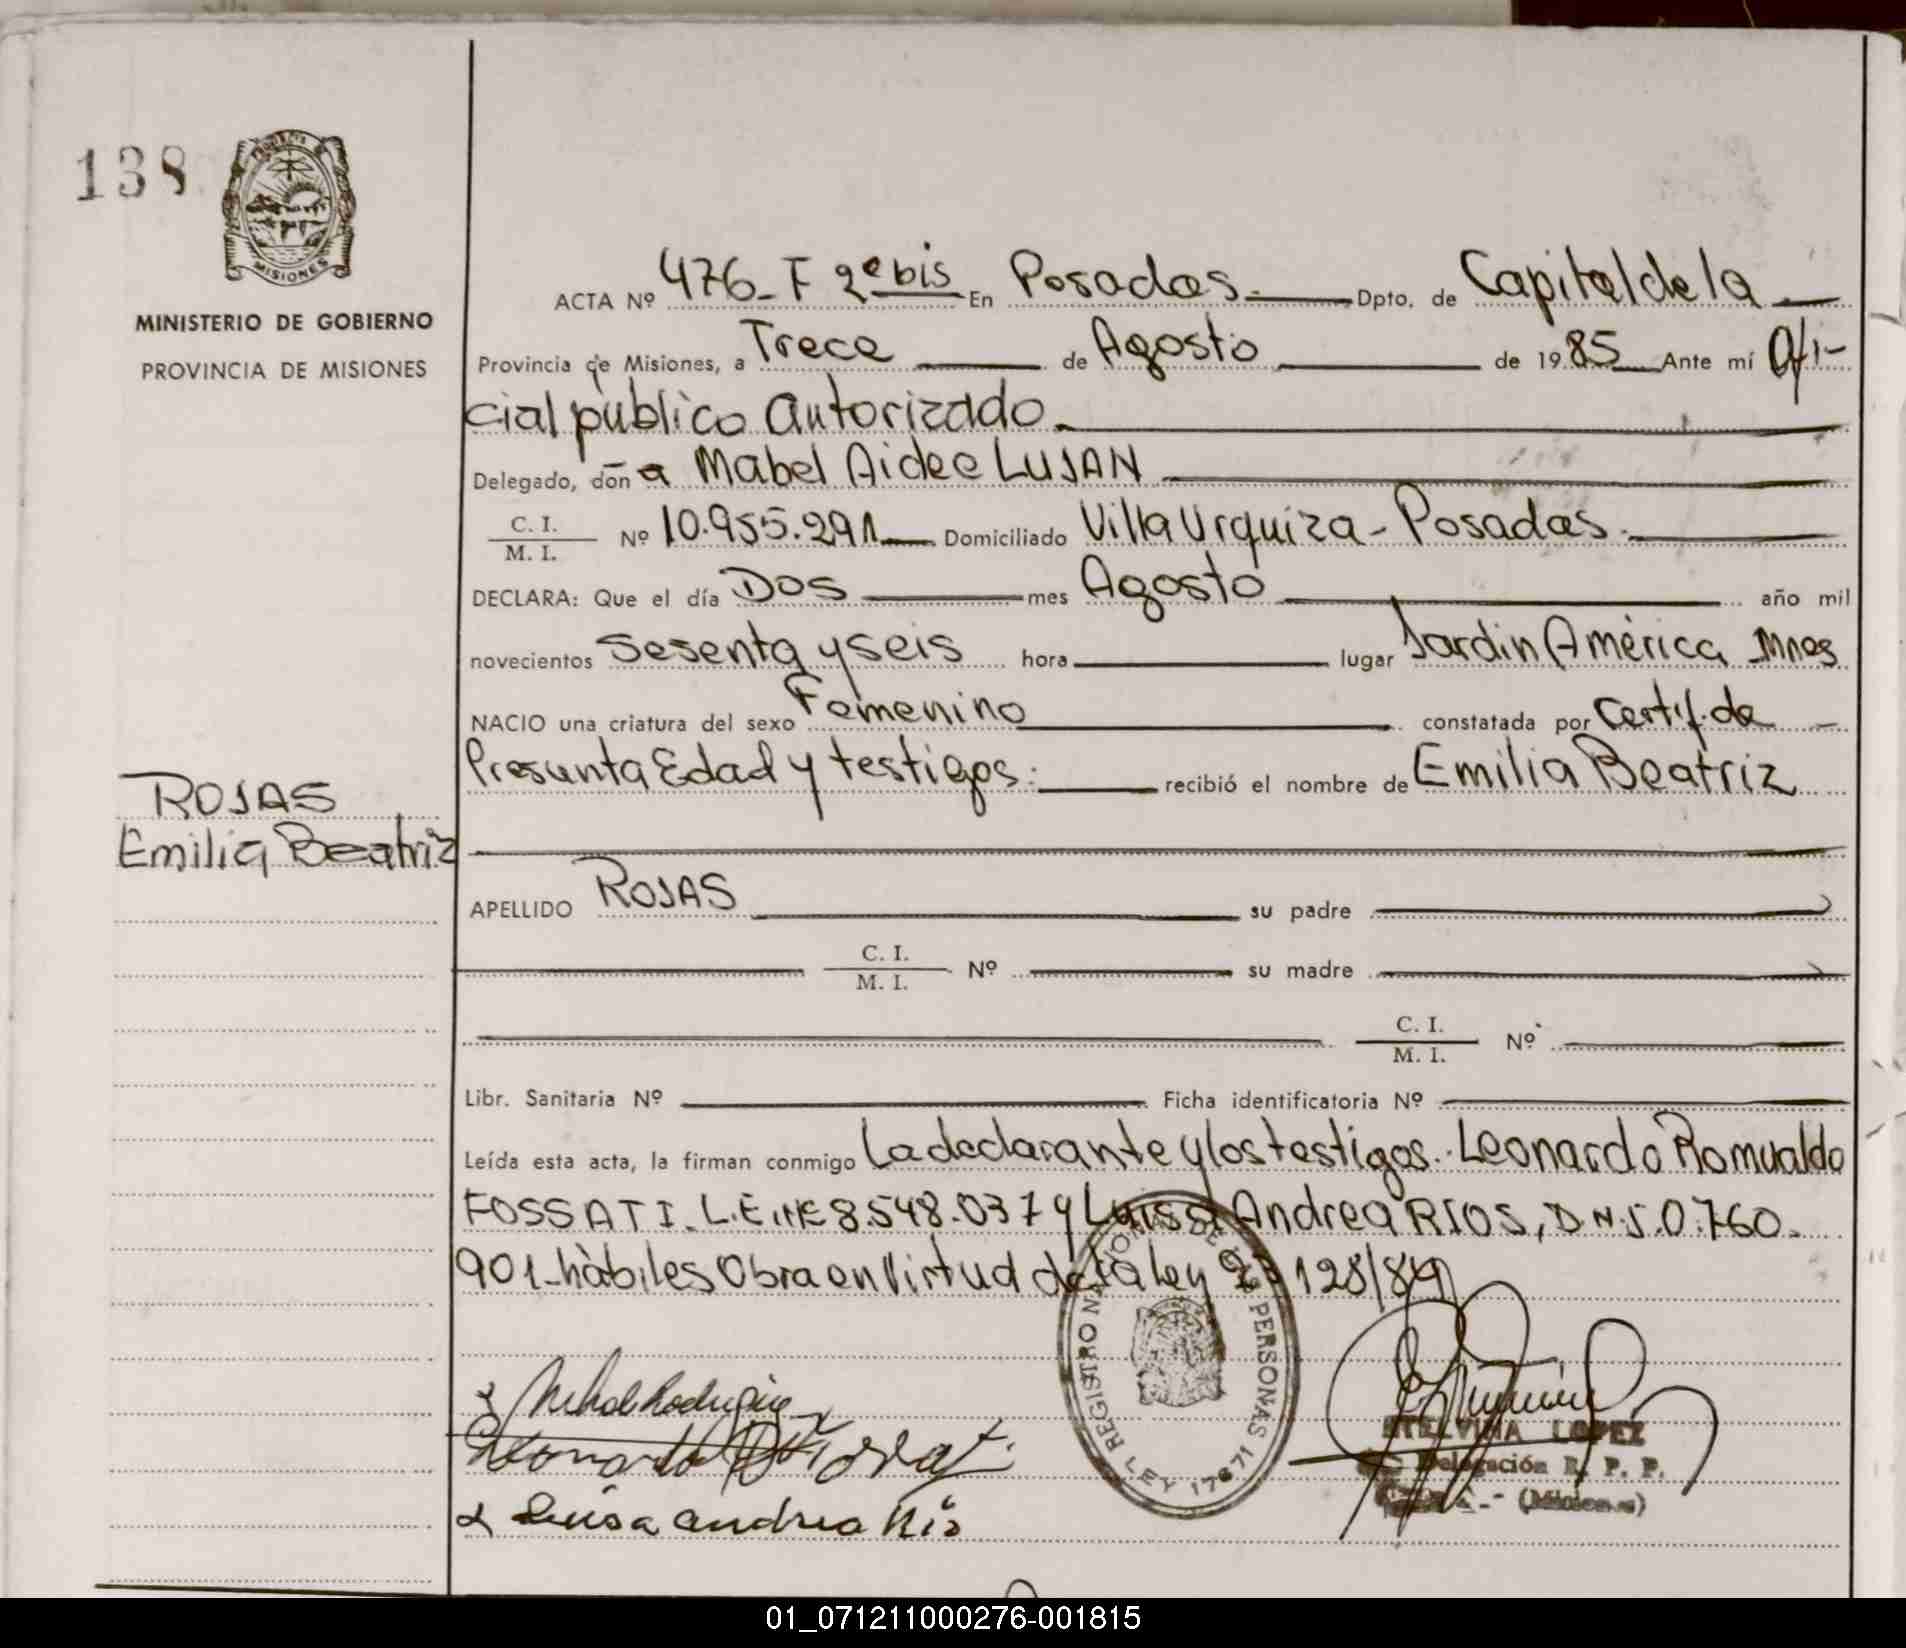 138
PROVINCIA DE
MISIONES
MINISTERIO DE GOBIERNO
PROVINCIA DE MISIONES
ACTA Nº 476_F 2º bis En Posadas. Dpto. de Capital de la
Provincia de Misiones, a Trece de Agosto de 1985 Ante mí Ofi-
cial público Autorizado
Delegado, doña Mabel Aidee LUJAN
C. I.
M. I. Nº 10.955.291 Domiciliado Villa Urquiza - Posadas.
DECLARA: Que el día DOS mes Agosto año mil
novecientos sesenta y seis hora lugar Jardin América Mnes
NACIO una criatura del sexo Femenino constatada por Certif. de
Presunta Edad y testigos: recibió el nombre de Emilia Beatriz
ROJAS
Emilia Beatriz
APELLIDO ROJAS su padre
C. I.
M. I. Nº su madre
C. I.
M. I. Nº
Libr. Sanitaria Nº Ficha identificatoria Nº
Leída esta acta, la firman conmigo La declarante y los testigos. Leonardo Romualdo
FOSSATI. L.E. Nº 8.548.037 y Luisa Andrea RIOS, D.N.I. 0.760.
901_hàbiles Obra en Virtud de la ley 23128/84
REGISTRO NACIONAL DE LAS PERSONAS
LEY 17671
Luisa Andrea Rio
ETELVINA LOPEZ
Delegación R. P. P.
(Misiones)
01_071211000276-001815